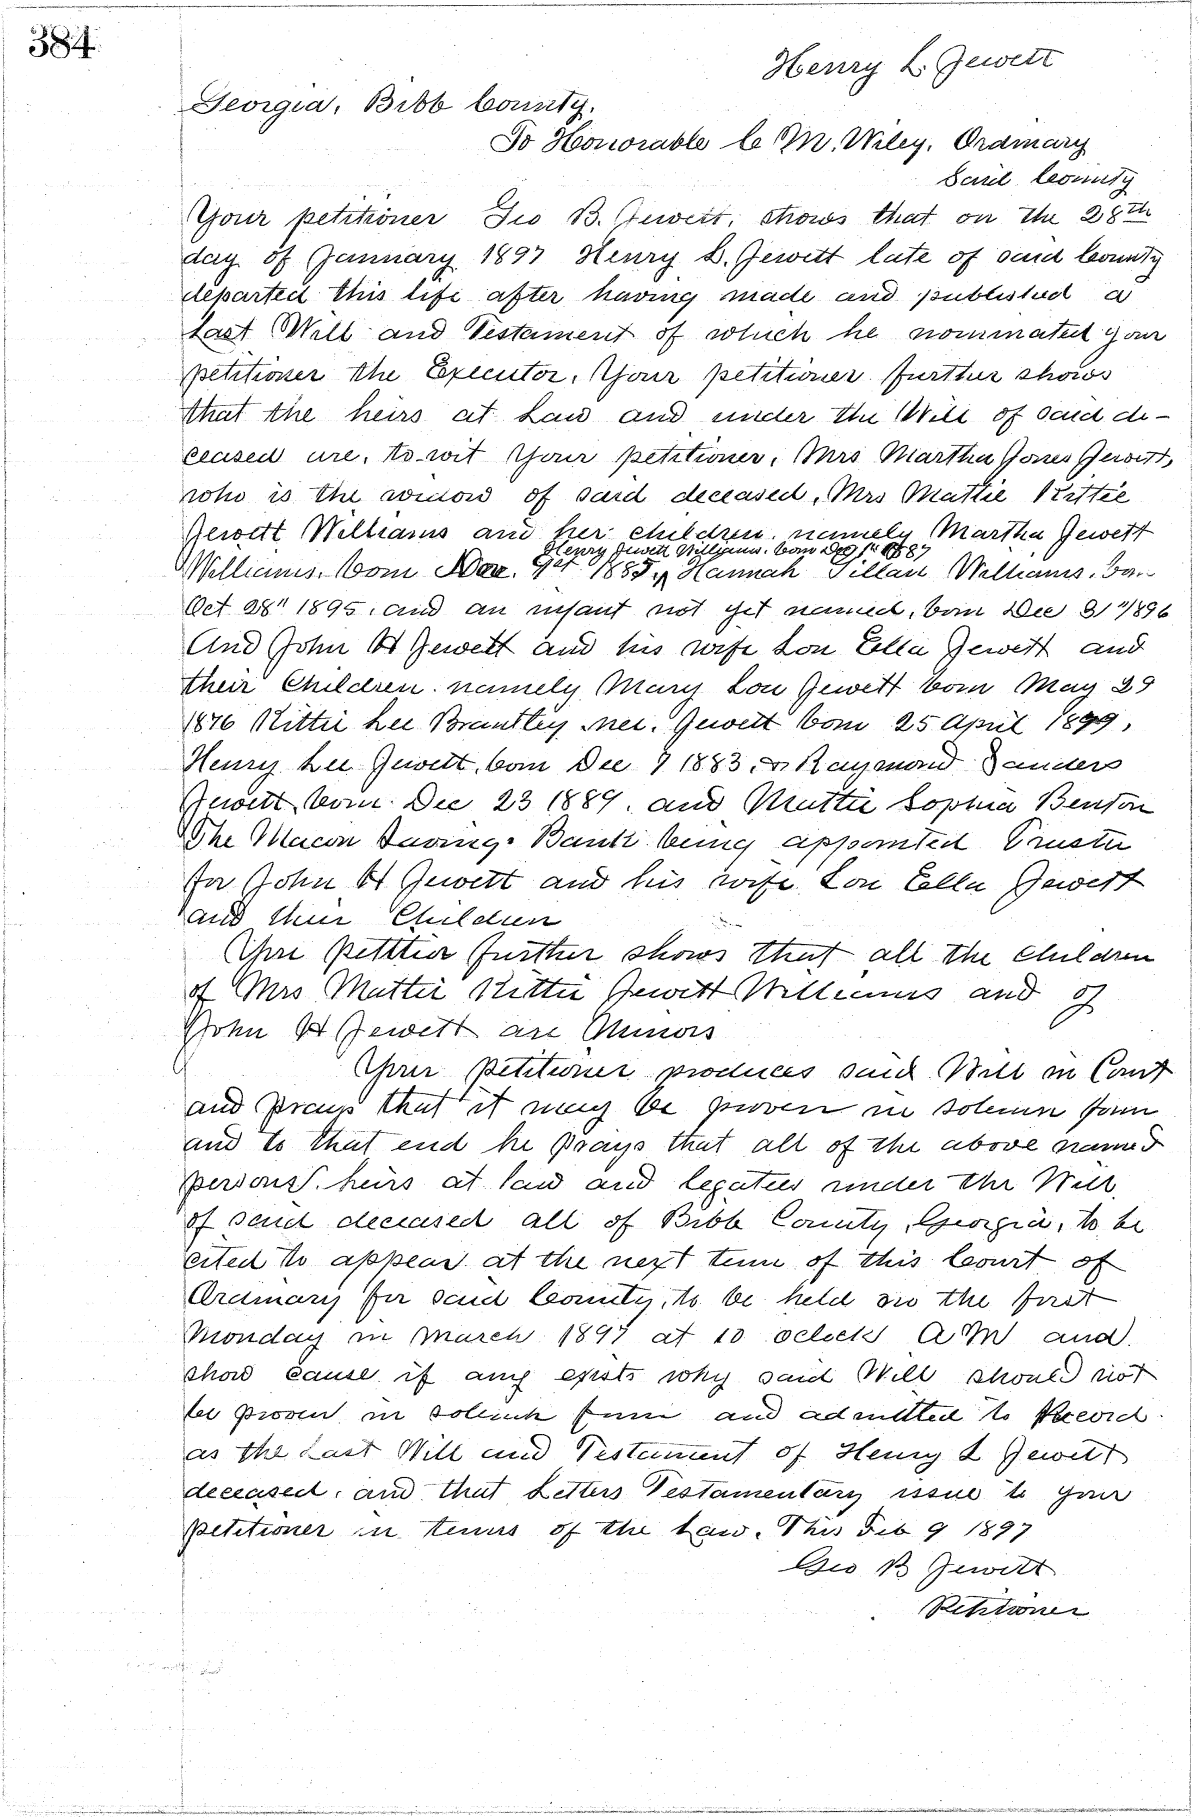 384
Henry L. Jewett
Georgia, Bibb County.
To Honorable C M. Wiley, Ordinary
Said County
Your petitioner Geo B. Jewett, shows that on the 28th
day of January 1897 Henry L. Jewett late of said County
departed this life after having made and published a
Last Will and Testament of which he nominated your
petitioner the Executor, Your petitioner further shows
that the heirs at Law and under the Will of said de-
ceased are, to-wit Your petitioner, Mrs Martha Jones Jewett,
who is the widow of said deceased, Mrs Mattie Kittie
Jewett Williams and her children, namely Martha Jewett
Henry Jewett Williams, born Dec 1st 1887
Williams, born Nov. 9th 1885, Hannah Tillan Williams, born
Oct 28" 1895, and an infant not yet named, born Dec 31" 1896
And John H Jewett and his wife Lou Ella Jewett and
their Children namely Mary Lou Jewett born May 29
1876 Kittie Lee Brantley nee. Jewett born 25 April 1899,
Henry Lee Jewett, born Dec 9 1883, & Raymond Sanders
Jewett, born Dec 23 1889, and Mattie Sophia Benton
The Macon Savings Bank being appointed Trustee
for John H Jewett and his wife Lou Ella Jewett
and their Children
Your petitior further shows that all the children
of Mrs Mattie Kittie Jewett Williams and of
John H Jewett are Minors
Your petitioner produces said Will in Court
and prays that it may be proven in solemn form
and to that end he prays that all of the above named
persons, heirs at law and legatees under the Will
of said deceased all of Bibb County, Georgia, to be
cited to appear at the next term of this Court of
Ordinary for said County, to be held on the first
Monday in March 1897 at 10 oclock A M and
show cause if any exists why said Will should not
be proven in solemn form and admitted to Record
as the Last Will and Testament of Henry L Jewett
deceased, and that Letters Testamentary issue to your
petitioner in terms of the Law. This Feb 9 1897
Geo B Jewett
Petitioner